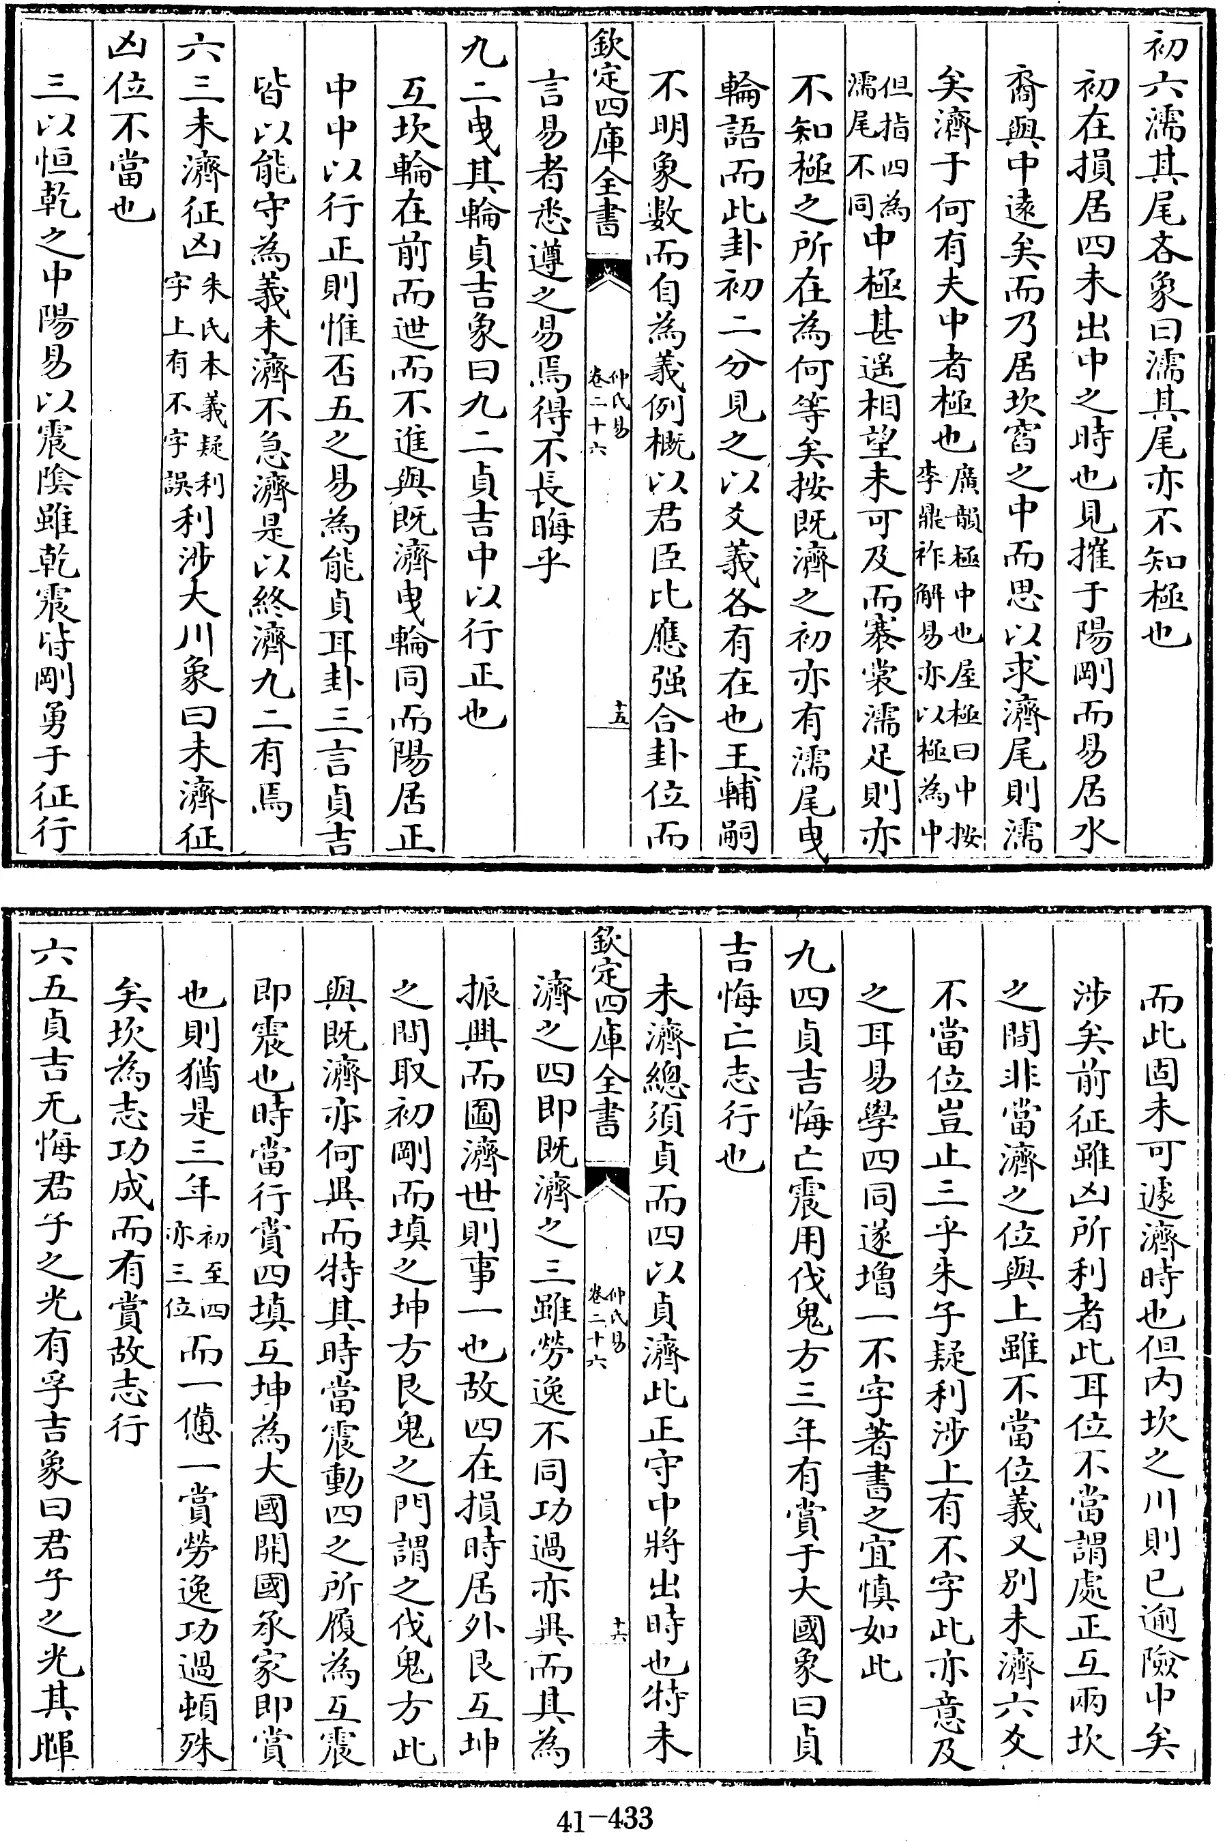 初六濡其尾吝象曰濡其尾亦不知極也
初在損居四未出中之時也見摧于陽剛而易居水
裔與中遠矣而乃居坎窞之中而思以求濟尾則濡
矣濟于何有夫中者極也廣韻極中也屋極曰中按
李鼎祚解易亦以極為中
但指四為
濡尾不同中極甚遥相望未可及而褰裳濡足則亦
不知極之所在為何等矣按既濟之初亦有濡尾曳
輪語而此卦初二分見之以爻義各有在也王輔嗣
不明象數而自為義例概以君臣比應强合卦位而
欽定四庫全書
仲氏易
卷二十六
十五
言易者悉遵之易焉得不長晦乎
九二曳其輪貞吉象曰九二貞吉中以行正也
互坎輪在前而迣而不進與既濟曳輪同而陽居正
中中以行正則惟否五之易為能貞耳卦三言貞吉
皆以能守為義未濟不急濟是以終濟九二有焉
六三未濟征凶朱氏本義疑利
字上有不字誤利涉大川象曰未濟征
凶位不當也
三以恒乾之中陽易以震陰雖乾震皆剛勇于征行
而此固未可遽濟時也但内坎之川則已逾險中矣
涉矣前征雖凶所利者此耳位不當謂處正互兩坎
之間非當濟之位與上雖不當位義又别未濟六爻
不當位豈止三乎朱子疑利涉上有不字此亦意及
之耳易學四同遂增一不字著書之宜慎如此
九四貞吉悔亡震用伐鬼方三年有賞于大國象曰貞
吉悔亡志行也
未濟總須貞而四以貞濟此正守中將出時也特未
欽定四庫全書
仲氏易
卷二十六
十六
濟之四即既濟之三雖勞逸不同功過亦異而其為
振興而圖濟世則事一也故四在損時居外艮互坤
之間取初剛而填之坤方艮鬼之門謂之伐鬼方此
與既濟亦何異而特其時當震動四之所履為互震
即震也時當行賞四填互坤為大國開國承家即賞
也則猶是三年初至四
亦三位而一憊一賞勞逸功過頓殊
矣坎為志功成而有賞故志行
六五貞吉无悔君子之光有孚吉象曰君子之光其暉
41-433